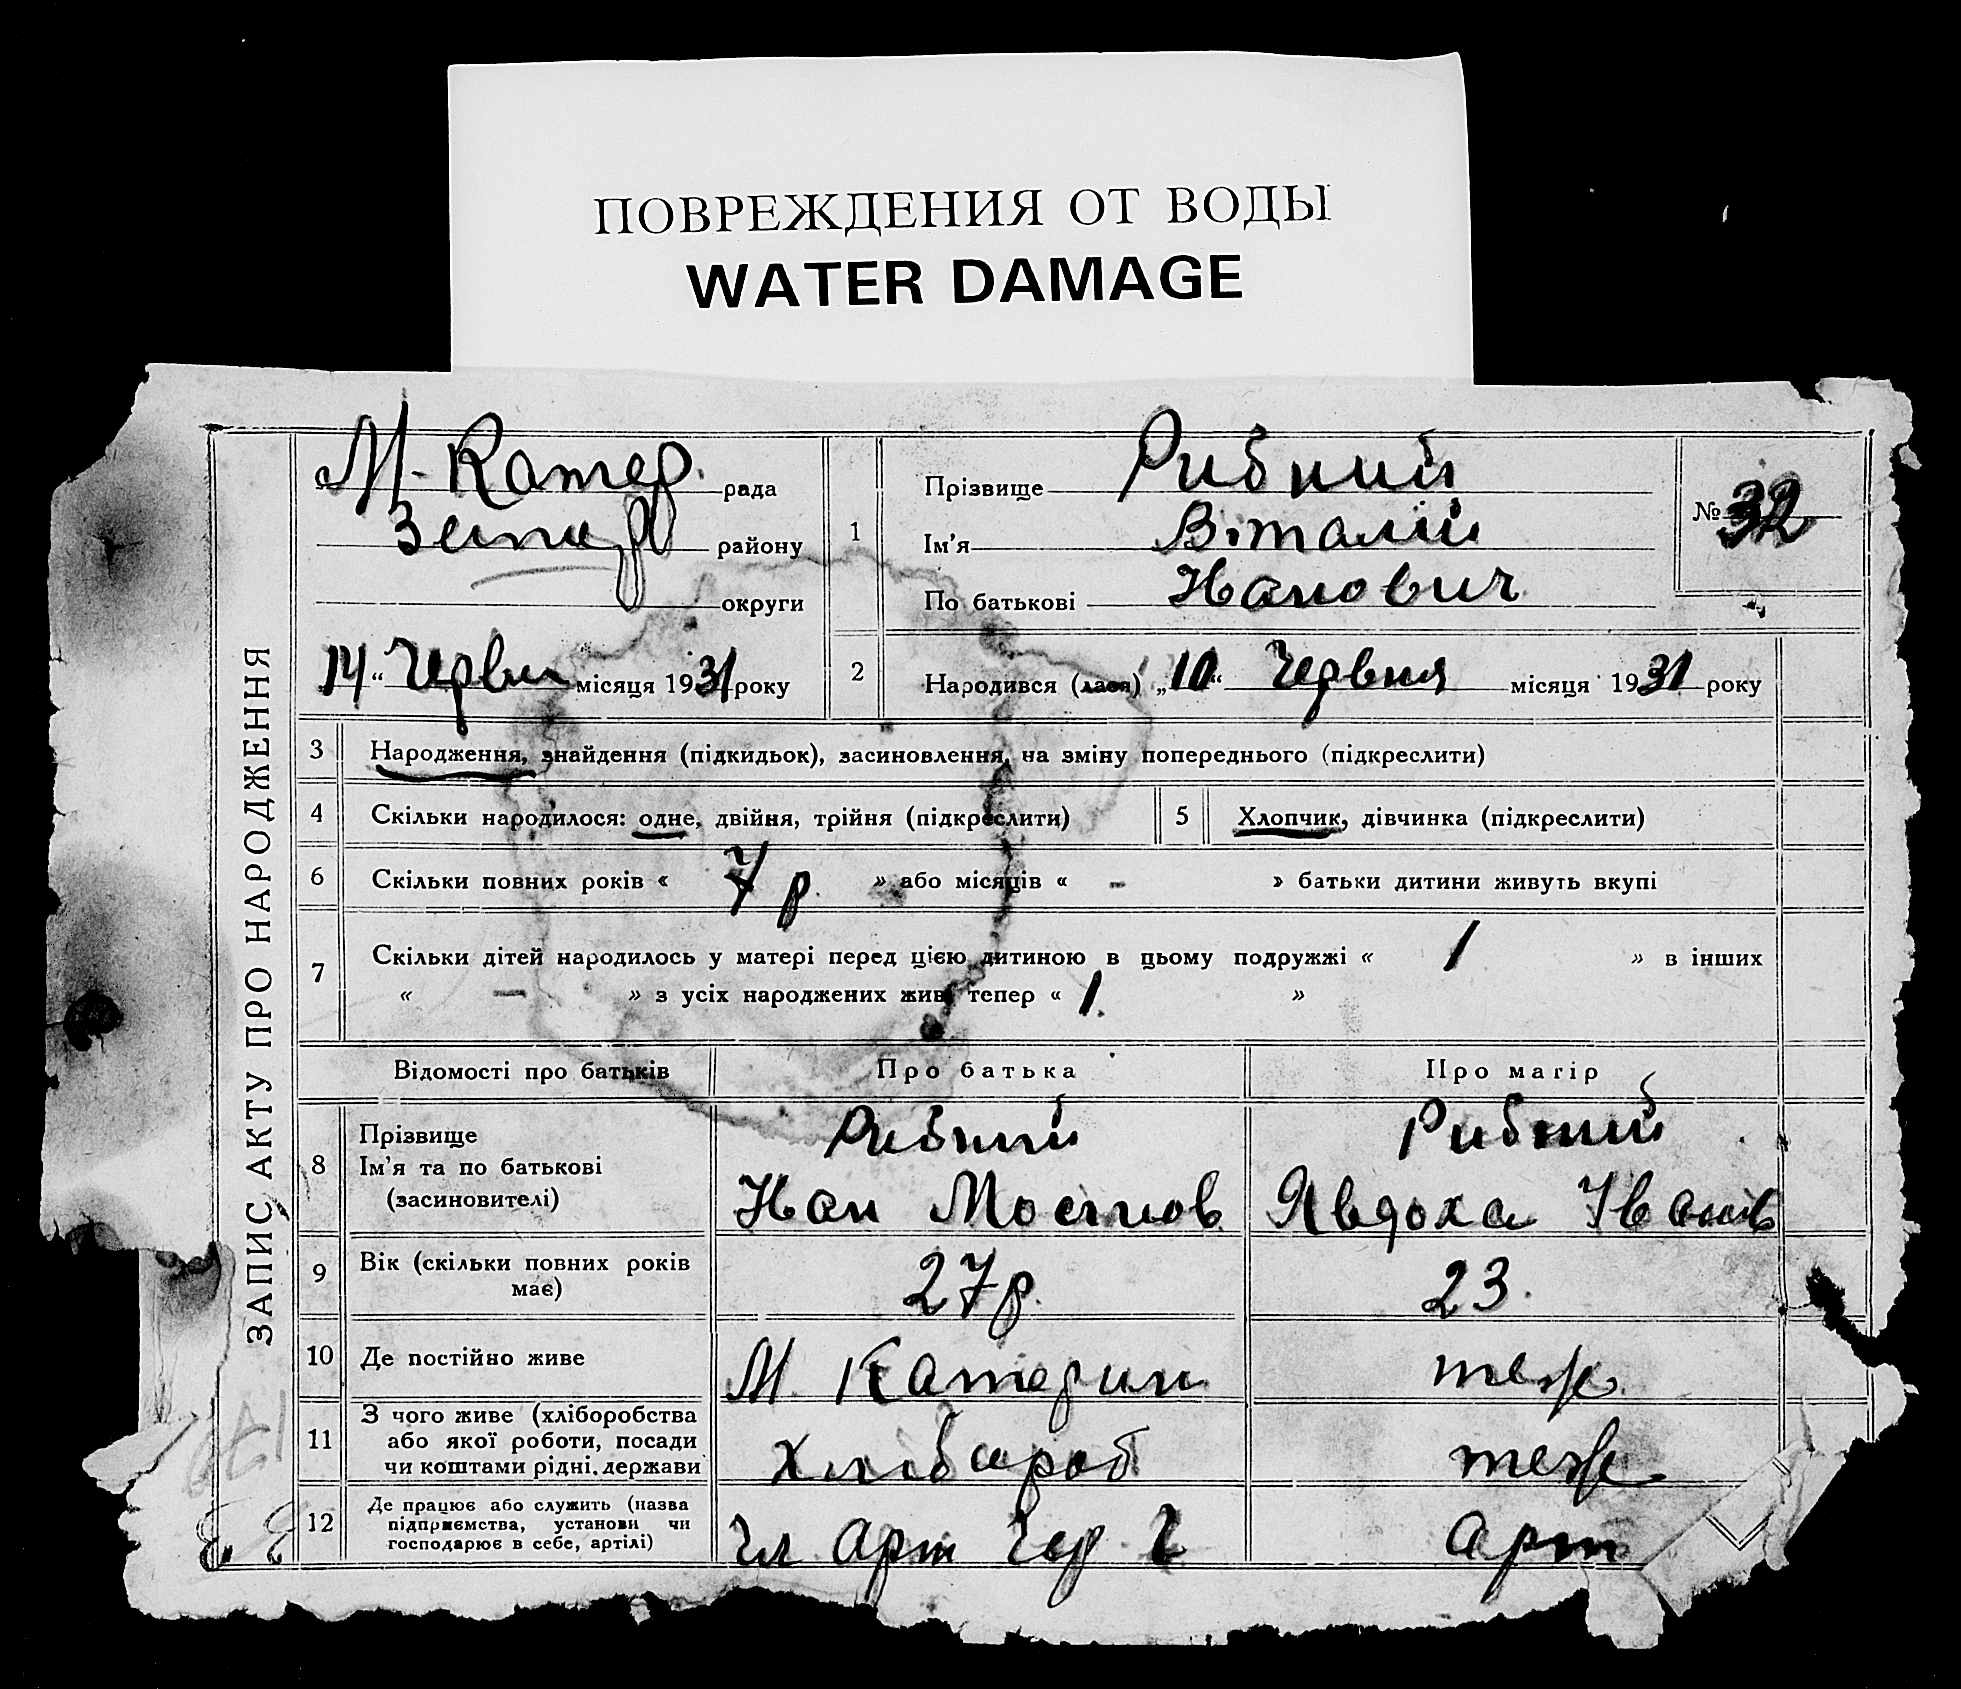 ПОВРЕЖДЕНИЯ ОТ ВОДЫ
WATER DAMAGE
ЗАПИС АКТУ ПРО НАРОДЖЕННЯ
М. Катер. рада
району
округи
14 " Червня місяця 1931 року
1
Прізвище Рибний
Ім'я Віталій
По батькові Иванович
№ 32
2
Народився (лася) „10“ Червня місяця 1931 року
3 Народження, знайдення (підкидьок), засиновлення, на зміну попереднього (підкреслити)
4 Скільки народилося: одне, двійня, трійня (підкреслити) 5 Хлопчик, дівчинка (підкреслити)
6 Скільки повних років « 7 р. » або місяців « - » батьки дитини живуть вкупі
7 Скільки дітей народилось у матері перед цією дитиною в цьому подружжі « 1 » в інших
« — » з усіх народжених живі тепер « 1. »
Відомості про батьків Про батька Про матір
8 Прізвище
Ім'я та по батькові
(засиновителі)
Рибний
Иван
Рибний
Явдоха Іванів
9 Вік (скільки повних років
має)
27 р.
23.
10 Де постійно живе М. Катерин теж
11 З чого живе (хліборобства
або якої роботи, посади
чи коштами рідні, держави
Хлібороб
теж
12 Де працює або служить (назва
підприємства, установи чи
господарює в себе, артілі)
Чл Арт Чер.
Арт